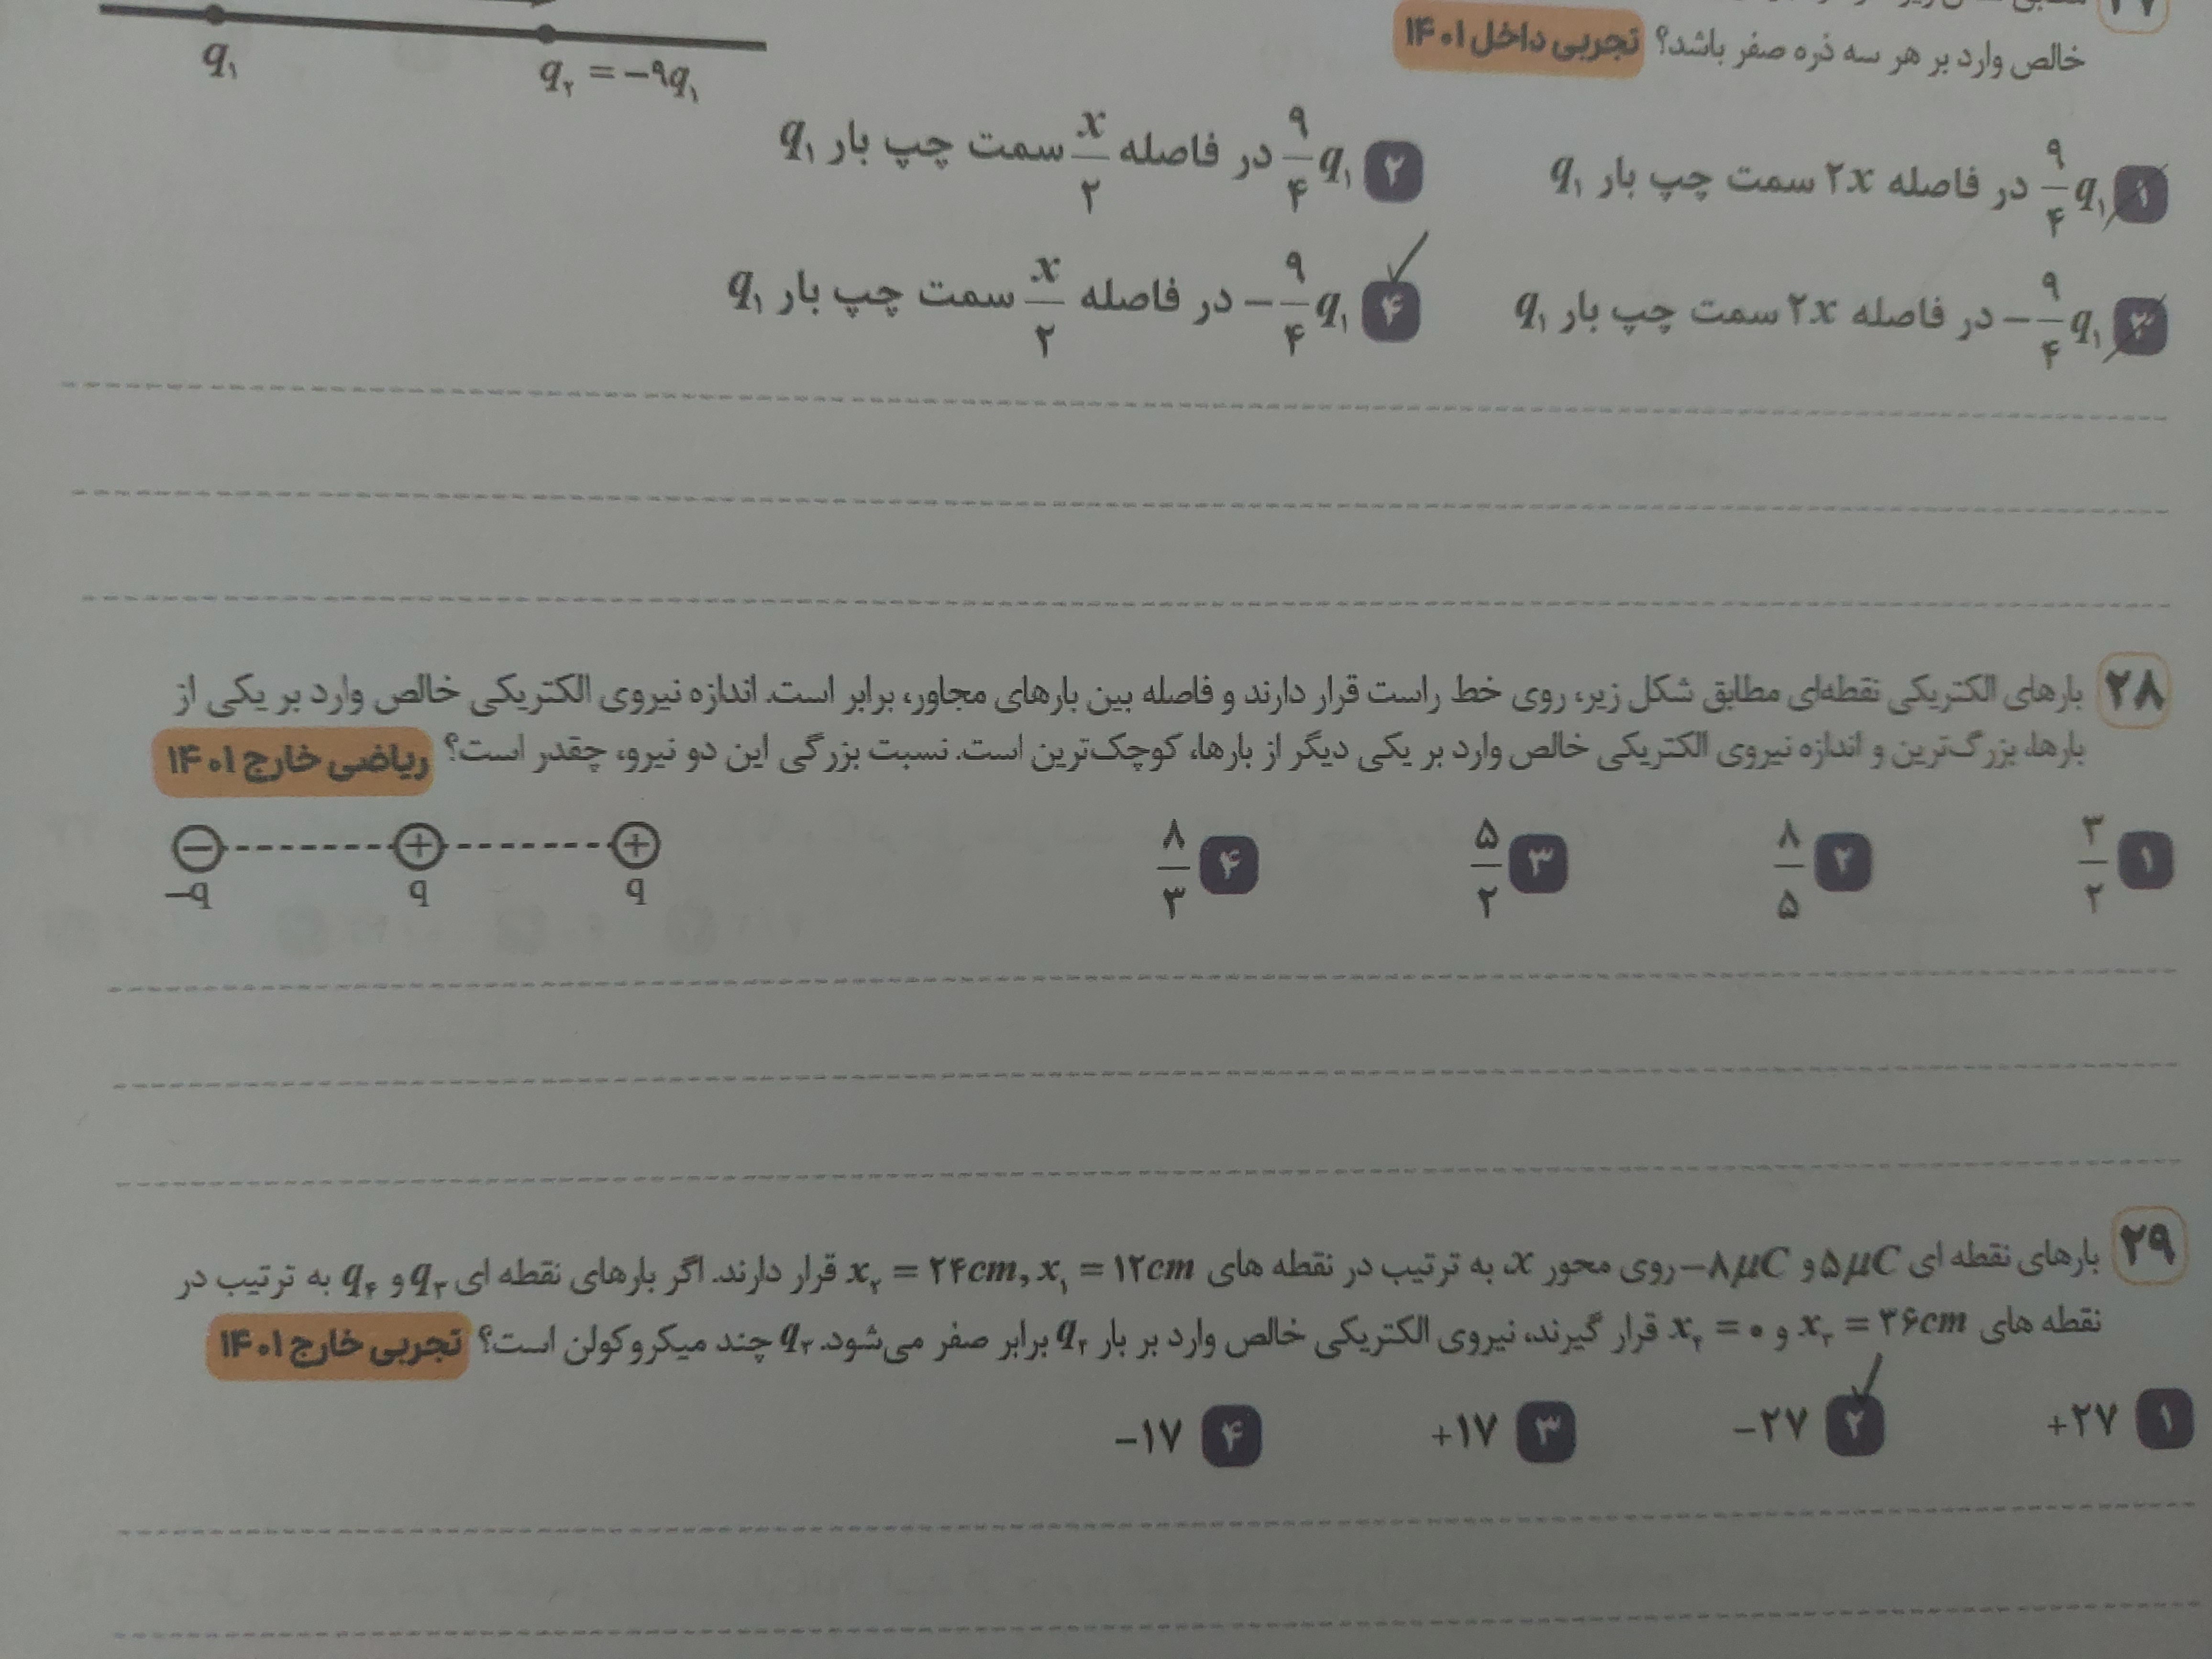 خالص وارد بر هر سه ذره صفر باشد؟ تجربی داخل ۱۴۰۱
q₁
q₂ = −۹q₁
۱ ۹/۴ q₁ در فاصله ۲x سمت چپ بار q₁
۲ ۹/۴ q₁ در فاصله x/۲ سمت چپ بار q₁
۳ −۹/۴ q₁ در فاصله ۲x سمت چپ بار q₁
۴ −۹/۴ q₁ در فاصله x/۲ سمت چپ بار q₁
۲۸ بارهای الکتریکی نقطه‌ای مطابق شکل زیر، روی خط راست قرار دارند و فاصله بین بارهای مجاور، برابر است. اندازه نیروی الکتریکی خالص وارد بر یکی از
بارها، بزرگ‌ترین و اندازه نیروی الکتریکی خالص وارد بر یکی دیگر از بارها، کوچک‌ترین است. نسبت بزرگی این دو نیرو، چقدر است؟ ریاضی خارج ۱۴۰۱
۱ ۳/۲ ۲ ۸/۵ ۳ ۵/۲ ۴ ۸/۳
− + +
−q q q
۲۹ بارهای نقطه ای ۵μC و −۸μC روی محور x، به ترتیب در نقطه های x₂ = ۲۴cm, x₁ = ۱۲cm قرار دارند. اگر بارهای نقطه ای q₃ و q₴ به ترتیب در
نقطه های x₃ = ۳۶cm و x₄ = ۰ قرار گیرند، نیروی الکتریکی خالص وارد بر بار q₴ برابر صفر می‌شود. q₃ چند میکروکولن است؟ تجربی خارج ۱۴۰۱
۱ +۲۷ ۲ −۲۷ ۳ +۱۷ ۴ −۱۷